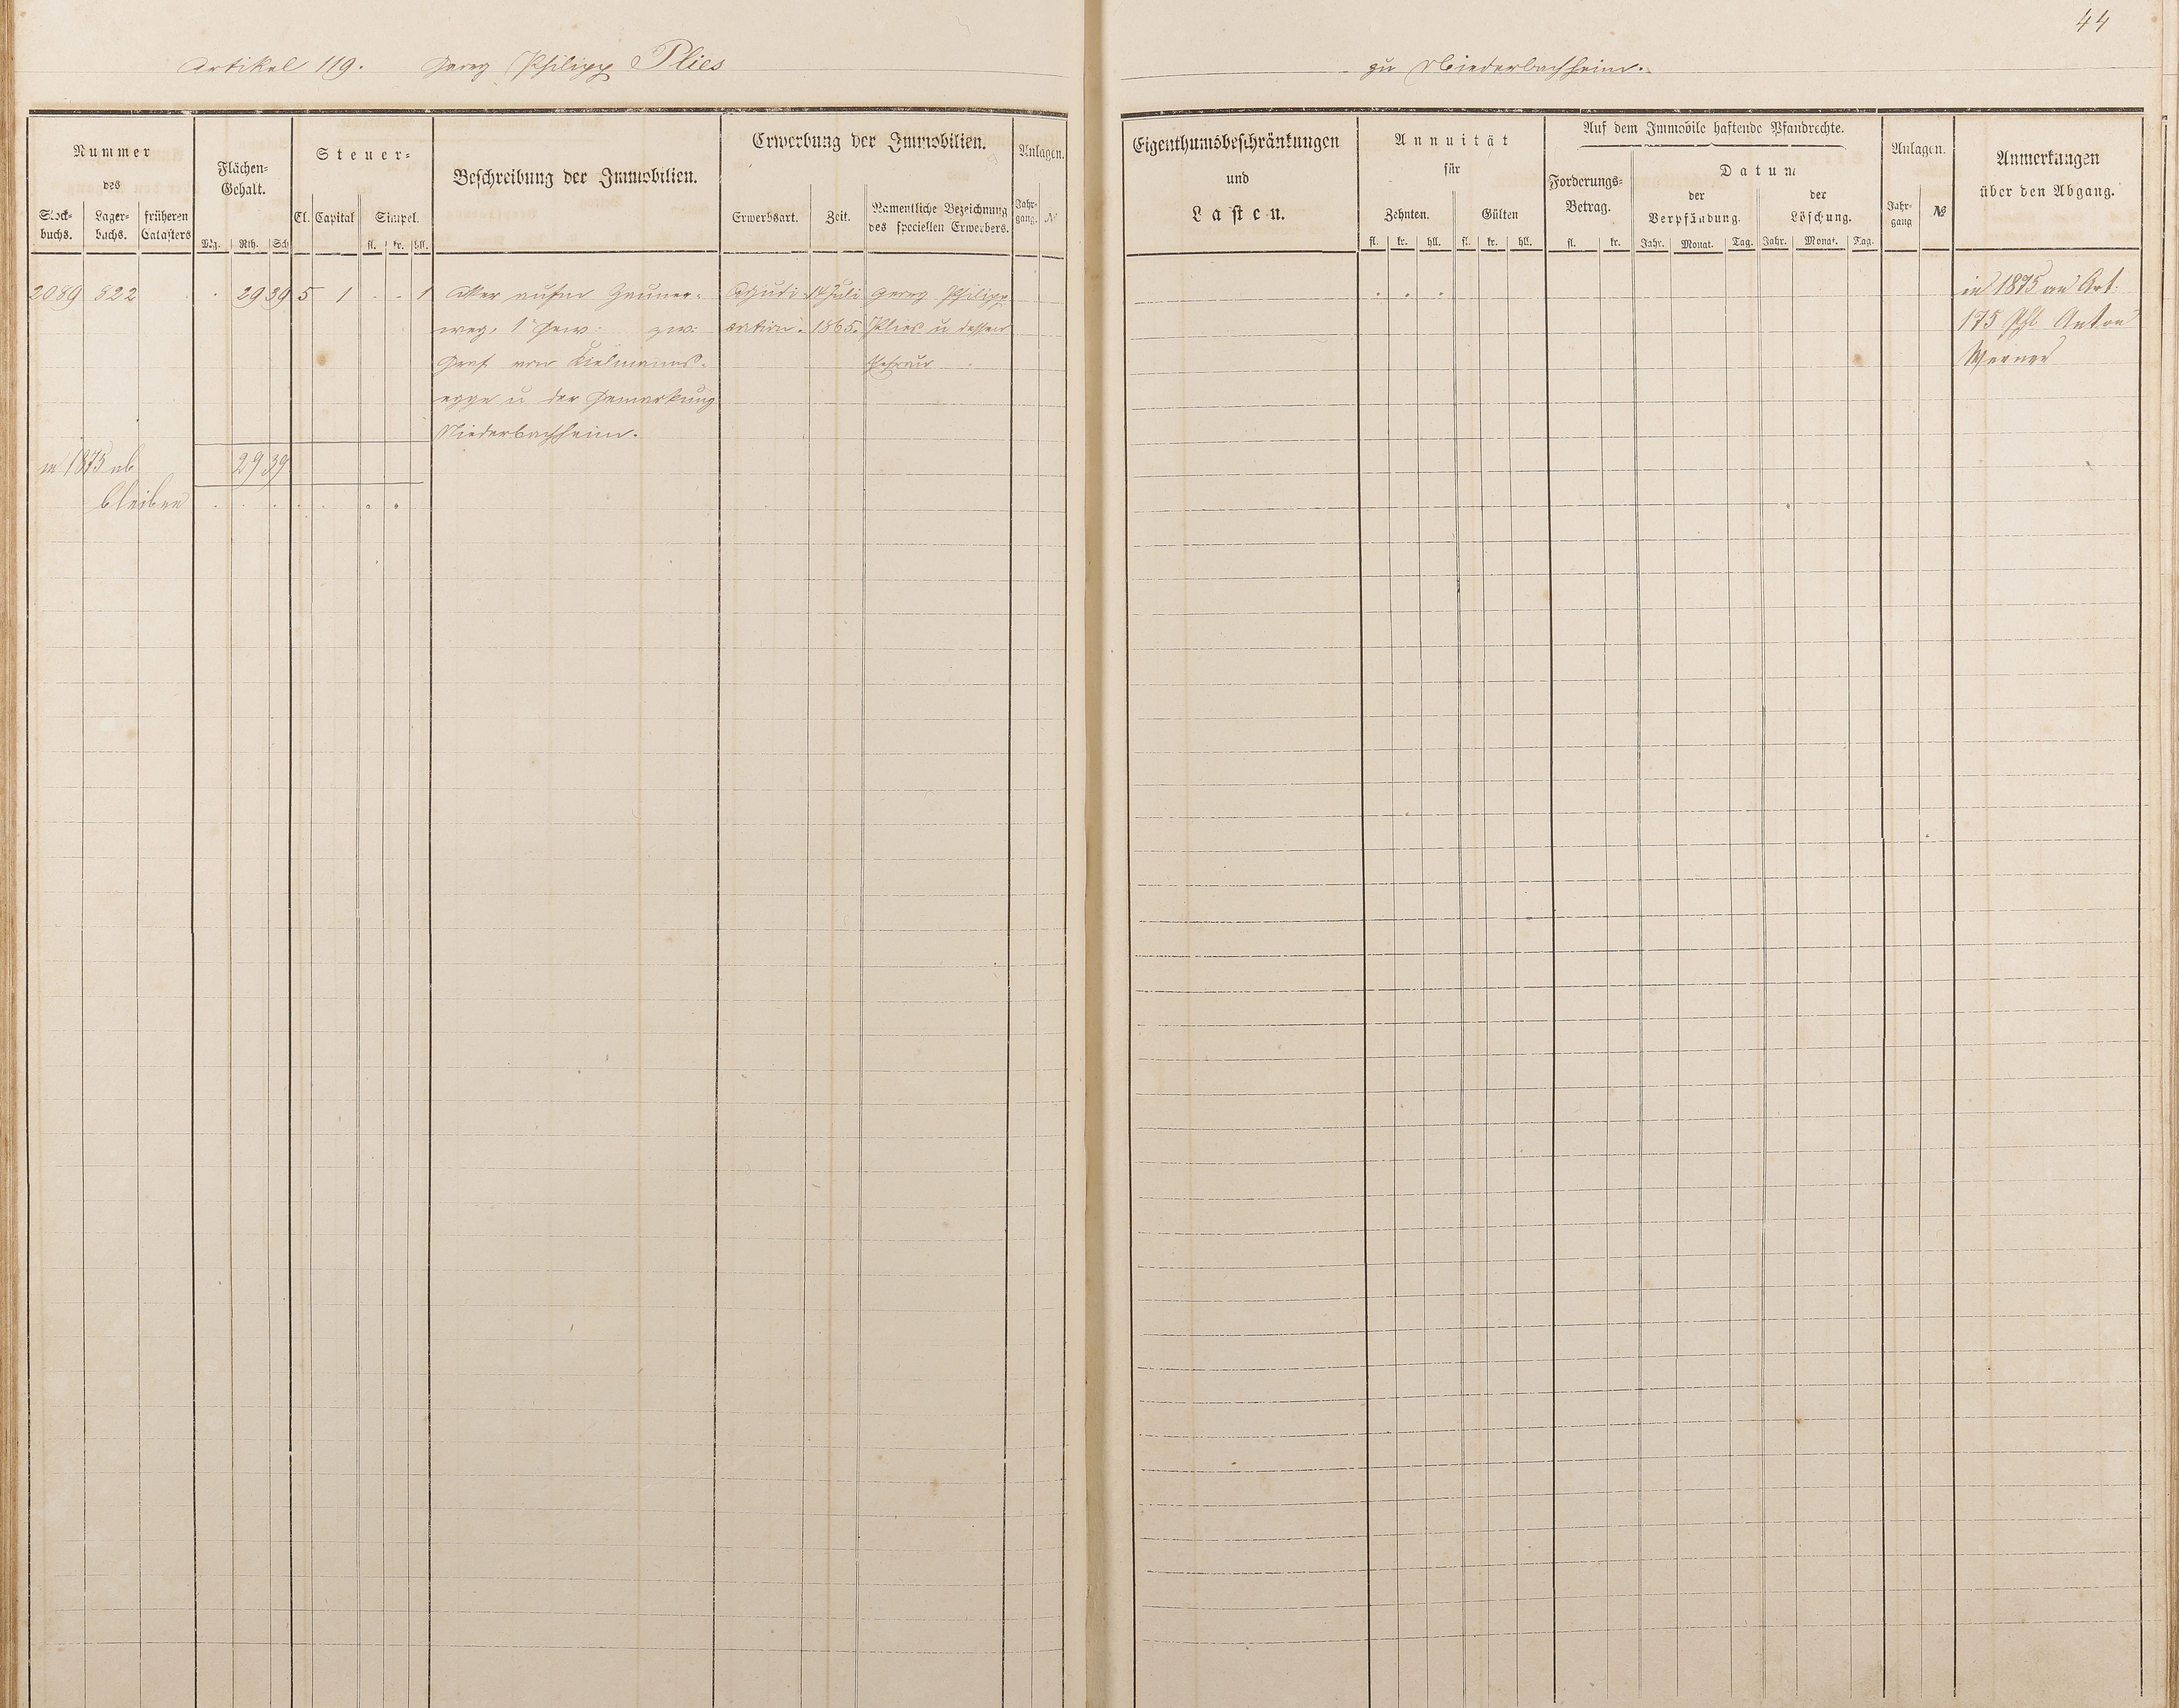 44
Artikel 119. Georg Philipp Plies
zu Niederbachheim.
Nummer
des
Stock-
buchs.
Lager-
buchs.
früheren
Catasters
Flächen-
Gehalt.
Mg. Rth. Sch
Steuer-
Cl. Capital Simpel.
fl. kr. hll.
Beschreibung der Immobilien.
Erwerbung der Immobilien.
Erwerbsart. Zeit.
Namentliche Bezeichnung
des speciellen Erwerbers.
Anlagen.
Jahr-
gang. №
Eigenthumsbeschränkungen
und
Lasten.
Annuität
für
Zehnten. Gülten
fl. kr. hll. fl. kr. hll.
Auf dem Immobile haftende Pfandrechte.
Forderungs-
Betrag.
fl. kr.
Datum
der
Verpfändung.
der
Löschung.
Jahr. Monat. Tag. Jahr. Monat. Tag.
Anlagen.
Jahr-
gang №
Anmerkungen
über den Abgang.
2089 822 . 29 39 5 1 . . 1 Acker aufm Zauner- Adjudi- 14 Juli Georg Philipp
weg, 1. Gew: zw: cation. 1865. Plies u dessen
Graf von Kielmanns- Ehefrau
egge u der Gemarkung
Niederbachheim.
in 1875 ab 29 39
bleiben . . . . . . .
. . .
in 1875 an Art.
175 Phl Anton
Werner